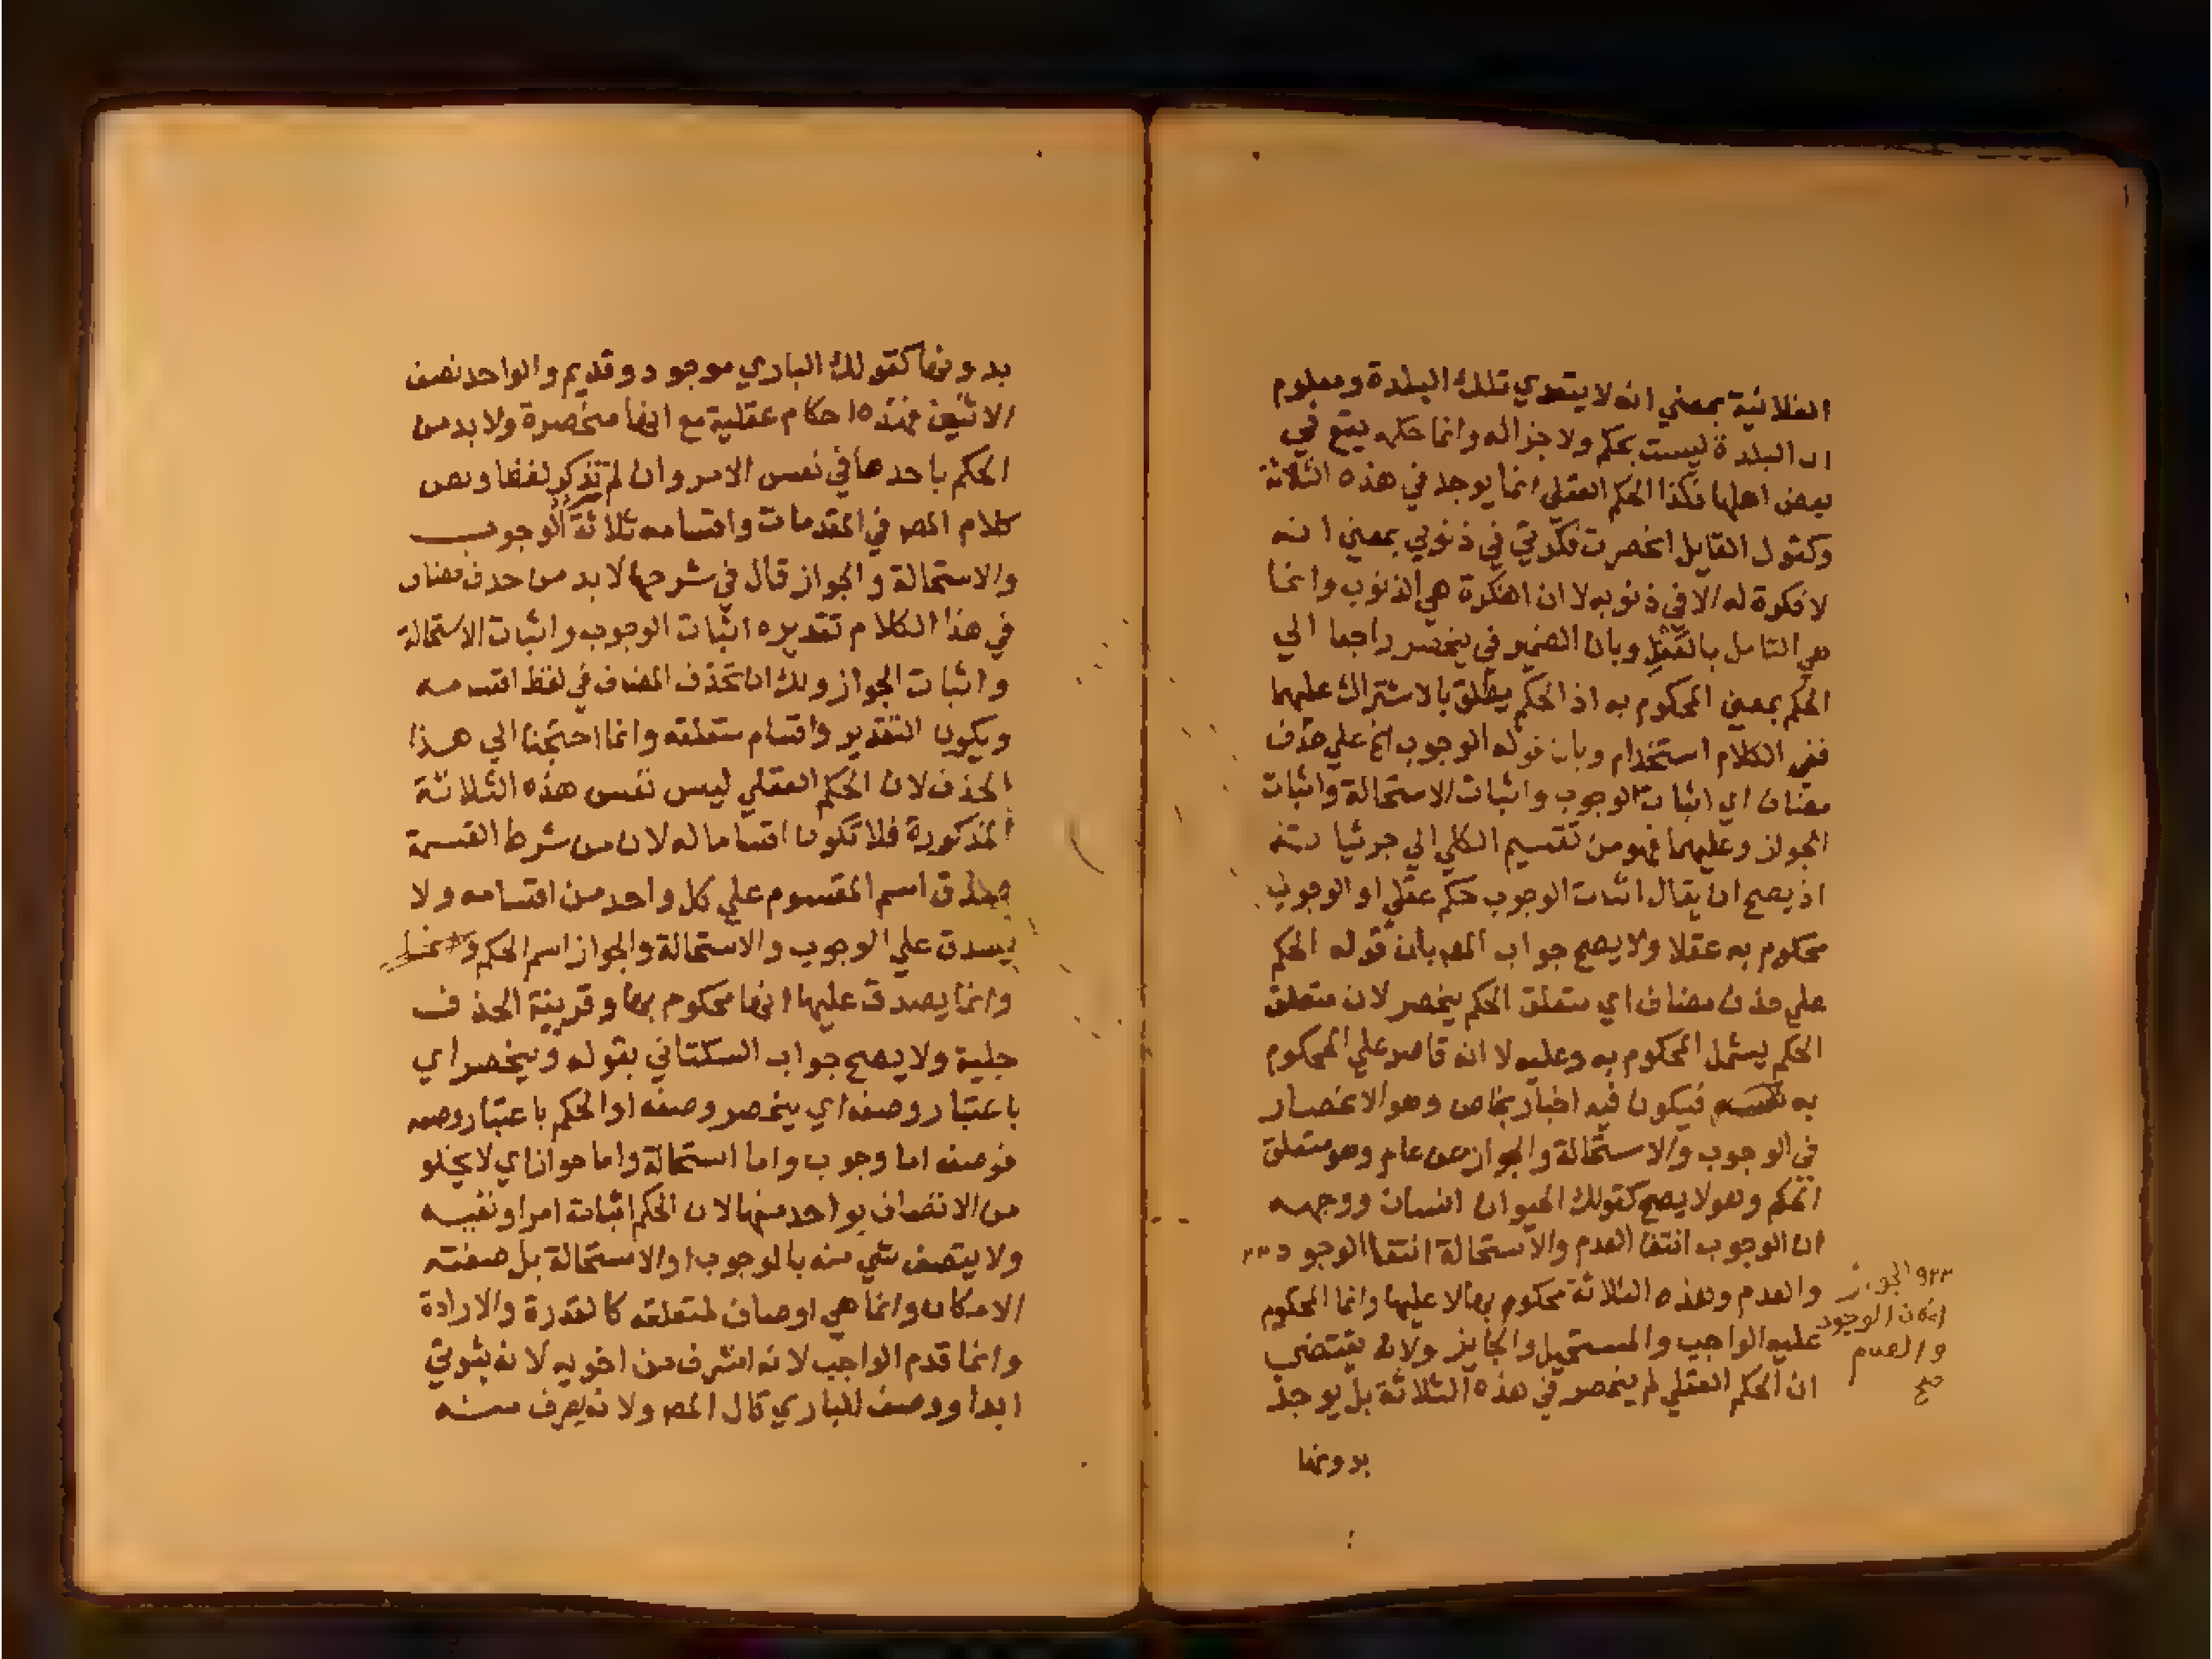 الفلانية بمعني انه لا يتعدي تلك البلدة ومعلوم
ان البلدة ليست بحكم ولا جزاله وانما حكمه يتبع في
بعض اهلها فكذا الحكم العقلي انما يوجد في هذه الثلاثة
وكقول القايل انحصرت فكرتي في ذنوبي بمعني انه
لا فكرة له الا في ذنوبه لا ان الفكرة هي الذنوب وانما
هي التامل بالعقل وبان الضمير في ينحصر راجعا الي
الحكم بمعني المحكوم به اذ الحكم يطلق بالاشتراك عليهما
ففي الكلام استخدام وبان قوله الوجوب الخ علي حذف
مضاف اي اثبات الوجوب واثبات الاستحالة واثبات
الجواز وعليهما فهو من تقسيم الكلي الي جزئياته
اذ يصح ان يقال اثبات الوجوب حكم عقلي او الوجوب
محكوم به عقلا ولا يصح جواب المص بان قوله الحكم
علي حذف مضاف اي متعلق الحكم ينحصر لان متعلق
الحكم يشمل المحكوم به وعليه لا انه قاصر علي المحكوم
به فيكون فيه اخبار بخاص وهو الانحصار
في الوجوب والاستحالة والجواز عن عام وهو متعلق
الحكم وهو لا يصح كقولك الحيوان انسان ووجهه
ان الوجوب انتفا العدم والاستحالة انتفا الوجود
والجواز
امكان الوجود
والعدم
صح
والعدم وهذه الثلاثة محكوم بها لا عليها وانما المحكوم
عليه الواجب والمستحيل والجايز ولانه يقتضي
ان الحكم العقلي لم ينحصر في هذه الثلاثة بل يوجد
بدونها
بدونها كقولك الباري موجود وقديم والواحد نصف
الاثنين فهذه احكام عقلية مع انها منحصرة ولا بد من
الحكم باحدها في نفس الامر وان لم تذكر لفظا ونص
كلام المص في المقدمات واقسامه ثلاثة الوجوب
والاستحالة والجواز قال في شرحها لا بد من حذف مضاف
في هذا الكلام تقديره اثبات الوجوب واثبات الاستحالة
واثبات الجواز ولك ان تحذف المضاف في لفظ اقسامه
ويكون التقدير واقسام متعلقه وانما احتجنا الي هذا
الحذف لان الحكم العقلي ليس نفس هذه الثلاثة
المذكورة فلا تكون اقساما له لان من شرط القسمة
صدق اسم المقسوم علي كل واحد من اقسامه ولا
يصدق علي الوجوب والاستحالة والجواز اسم الحكم
وانما يصدق عليها انها محكوم بها وقرينة الحذف
جلية ولا يصح جواب السكتاني بقوله وينحصر اي
باعتبار وصفه اي ينحصر وصفه او الحكم باعتبار وصفه
فوصفه اما وجوب واما استحالة واما جواز اي لا يخلو
من الاتصاف بواحد منها لان الحكم اثبات امر او نفيه
ولا يتصف شي منه بالوجوب او الاستحالة بل صفته
الامكان وانما هي اوصاف لمتعلقه كالقدرة والارادة
وانما قدم الواجب لانه اشرف من اخويه لانه ثبوتي
ابدا ووصف للباري قال المص ولا نه يعرف منه